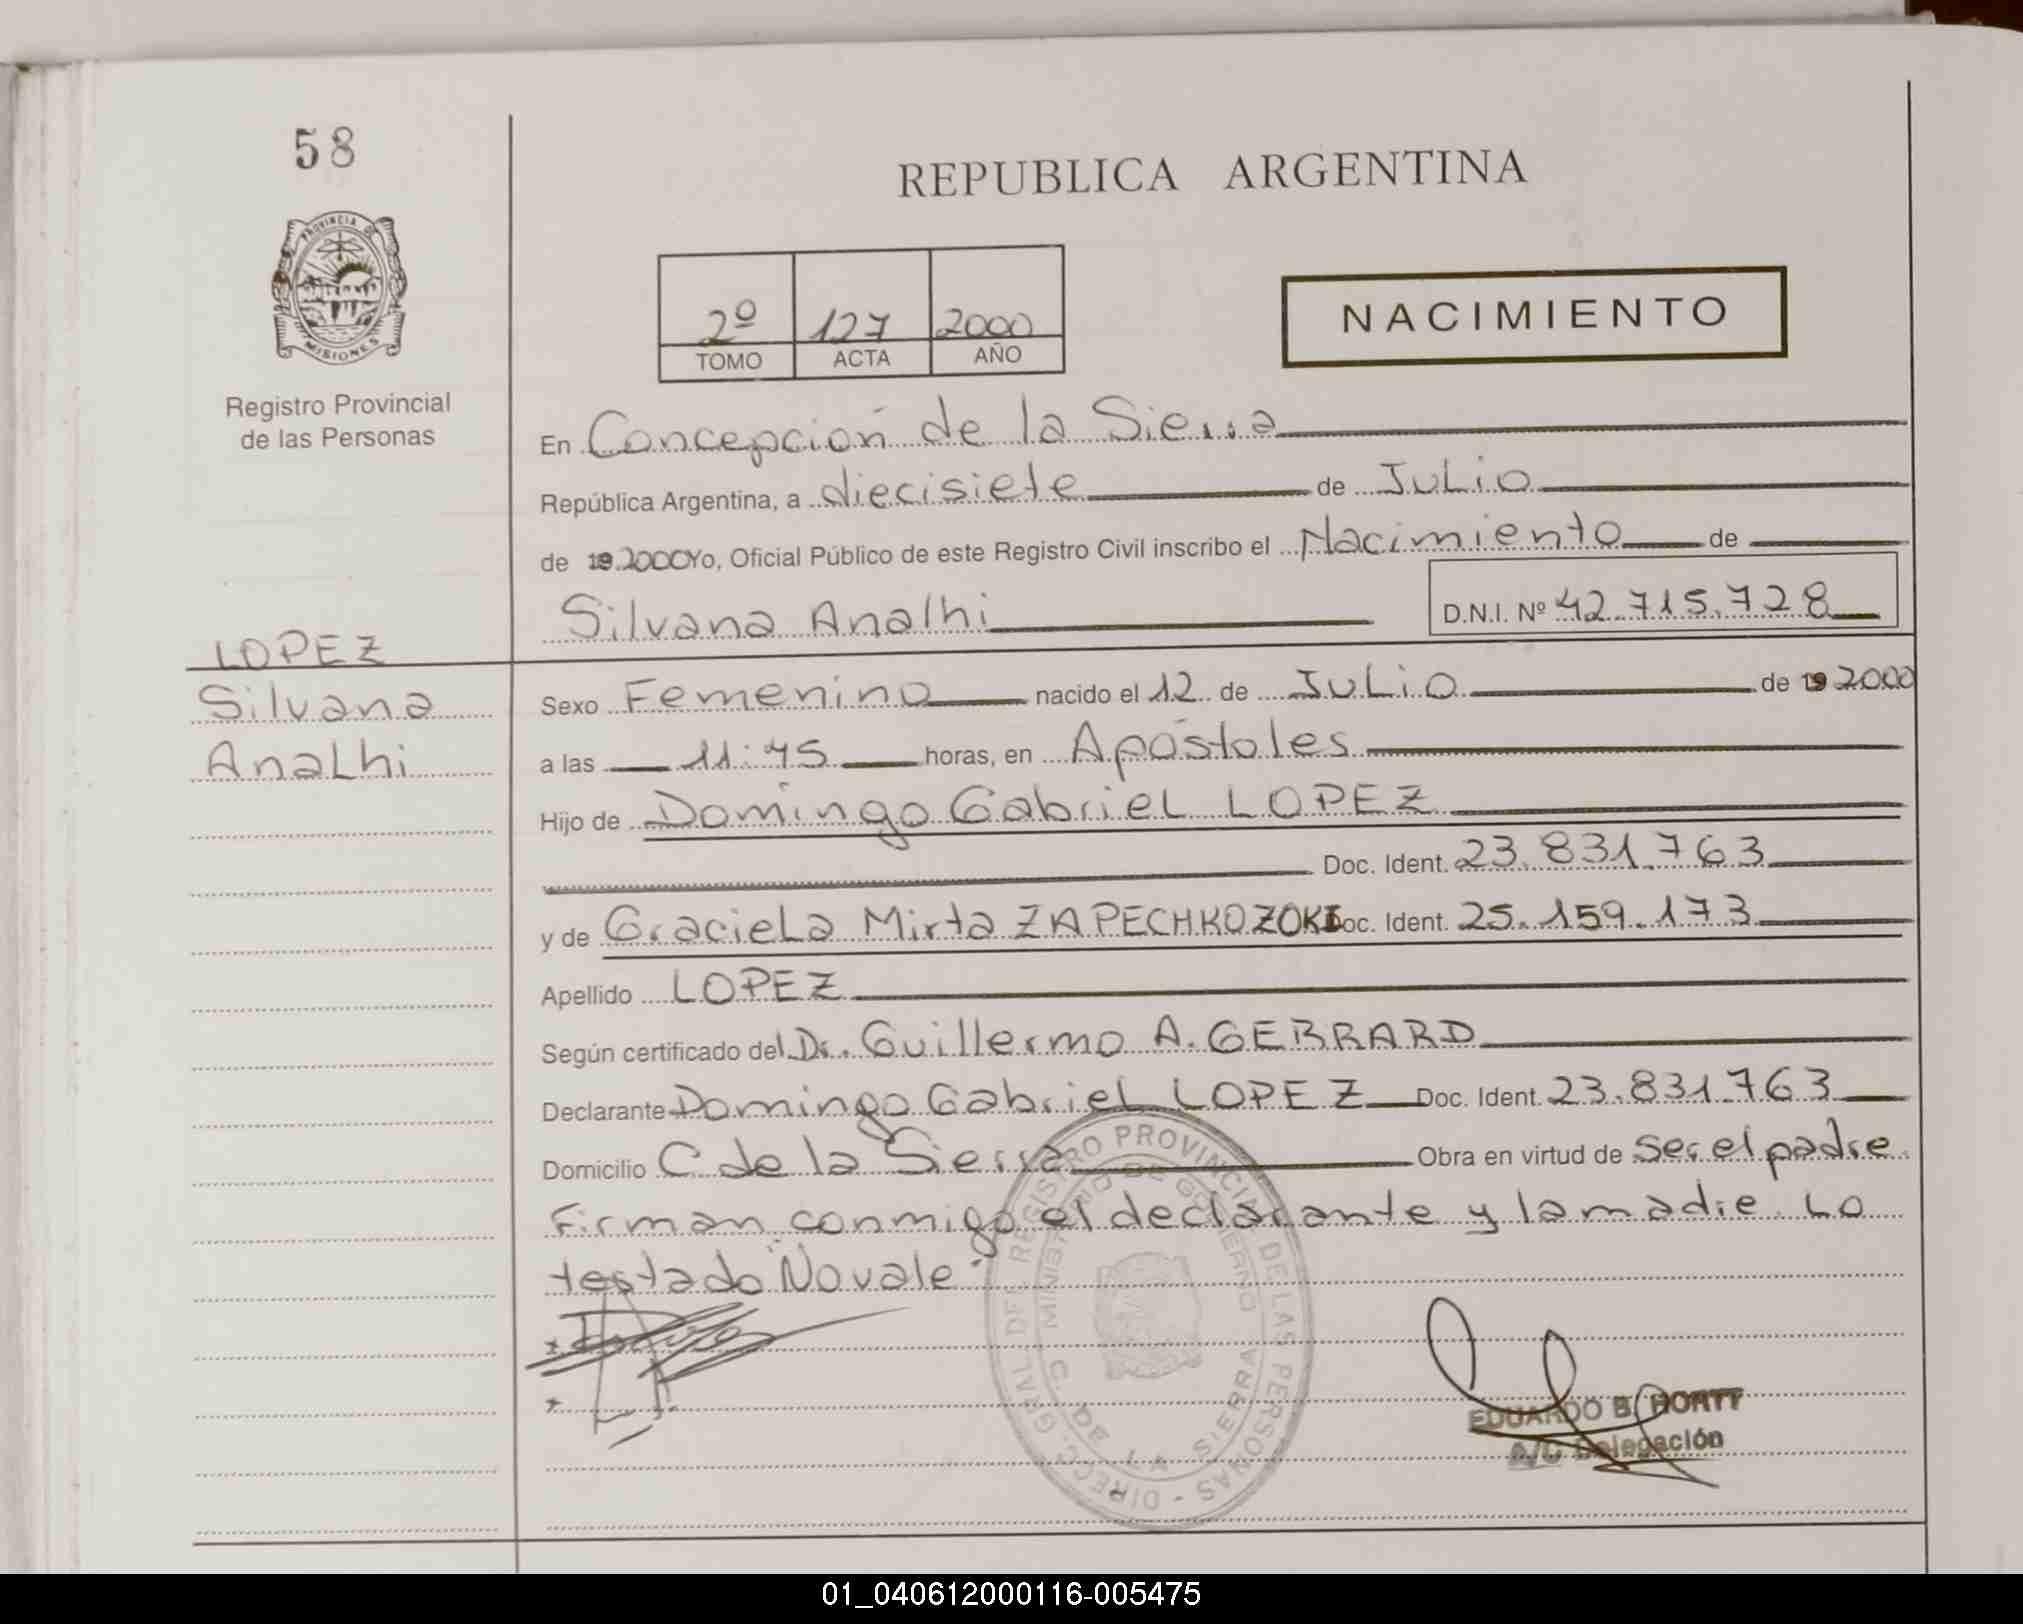 58
REPUBLICA ARGENTINA
PROVINCIA DE
MISIONES
2º 127 2000
TOMO ACTA AÑO
NACIMIENTO
Registro Provincial
de las Personas
En Concepción de la Sierra
República Argentina, a diecisiete de Julio
de 19 2000 Yo, Oficial Público de este Registro Civil inscribo el Nacimiento de
Silvana Analhi D.N.I. Nº 42.715.728
LOPEZ
Silvana
Analhi
Sexo Femenino nacido el 12 de Julio de 19 2000
a las 11:45 horas, en Apóstoles
Hijo de Domingo Gabriel LOPEZ
Doc. Ident. 23.831.763
y de Graciela Mirta ZAPECHKOZOKI Doc. Ident. 25.159.173
Apellido LOPEZ
Según certificado del Dr. Guillermo A. GEBRARD
Declarante Domingo Gabriel LOPEZ Doc. Ident. 23.831.763
Domicilio C de la Sierra Obra en virtud de ser el padre
Firman conmigo el declarante y la madre. Lo
testado "No vale"
DIRECC. GRAL. DEL REGISTRO PROVINCIAL DE LAS PERSONAS
MINISTERIO DE GOBIERNO
C. DE LA SIERRA
EDUARDO B. HORTT
A/C Delegación
01_040612000116-005475